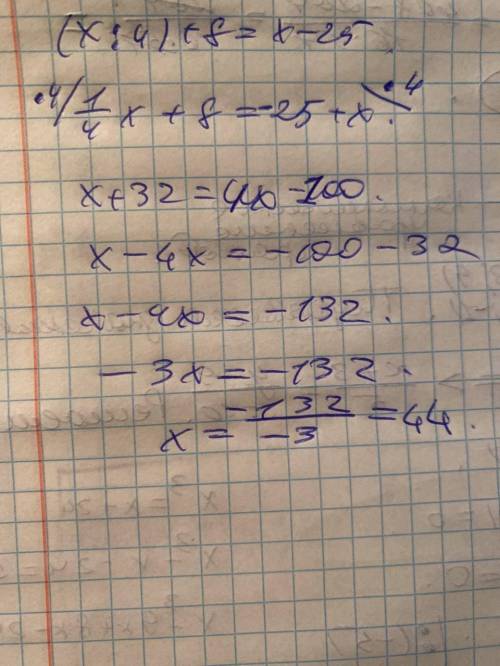 (x : 4) + 8 = x - 25
·4/ 1/4 x + 8 = -25 + x \·4
x + 32 = 4x - 100.
x - 4x = -100 - 32
x - 4x = -132.
- 3x = -132.
x = -132/-3 = 44.